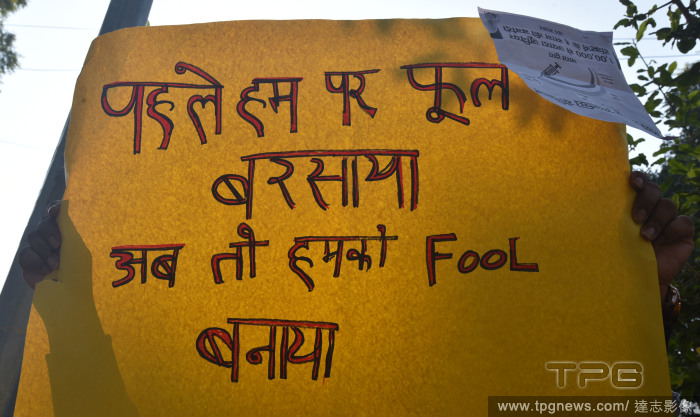 पहले हम पर फूल
बरसाया
अब तो हमको FOOL
बनाया
TPG
www.tpgnews.com/ 達志影像